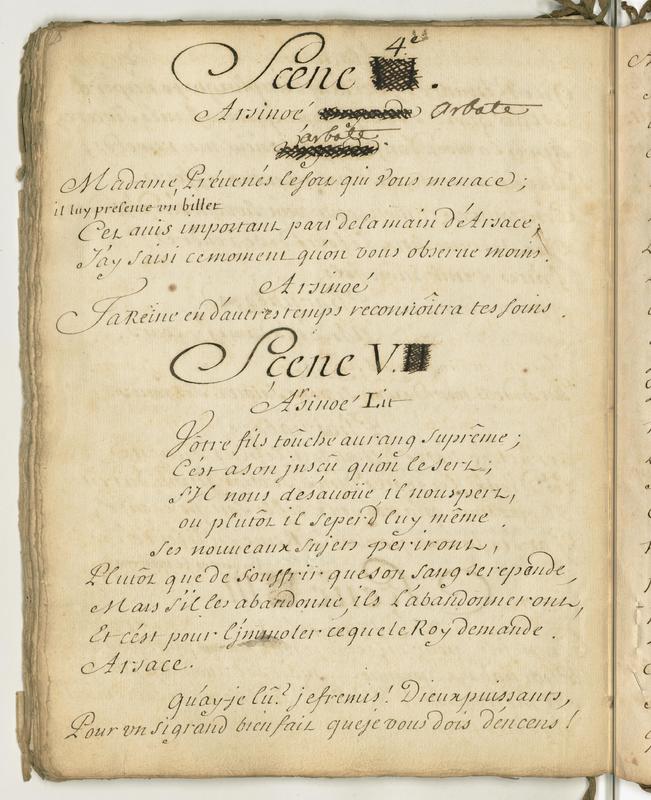 Scene 4.e .
Arsinoé arbate
arbate .
Madame, Prévenés le sort qui vous menace ;
il luy présente vn billet
Cet auis important part dela main d'Arsace,
J'ay saisi cemoment qu'on vous obserue moins.
Arsinoé
Ta Reine en d'autres temps reconnoîtra tes soins .
Scene V.
Arsinoé Lit
Vôtre fils toûche au rang suprême ;
C'ést a son jnsçû qu'on le sert ;
S'Jl nous désavoüe, il nous pert,
ou plutôt il se perd luy même .
Ses nouveaux sujets périront,
Plutôt que de souffrir que son sang se repende,
Mais s'il les abandonne, ils l'abandonneront,
Et c'ést pour l'jmmoler ce que le Roy demande .
Arsace.
Qu'ay-je lû? je fremis ! Dieux puissants,
Pour vn si grand bien fait que je vous dois d'encens !